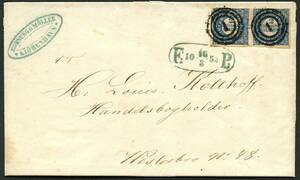 KJØBENHAVN
S.T.
1
1
F. 10 16/3 53 P.
H. Louis Kolthoff
Handelsbogholder
Westerbro No. 48.